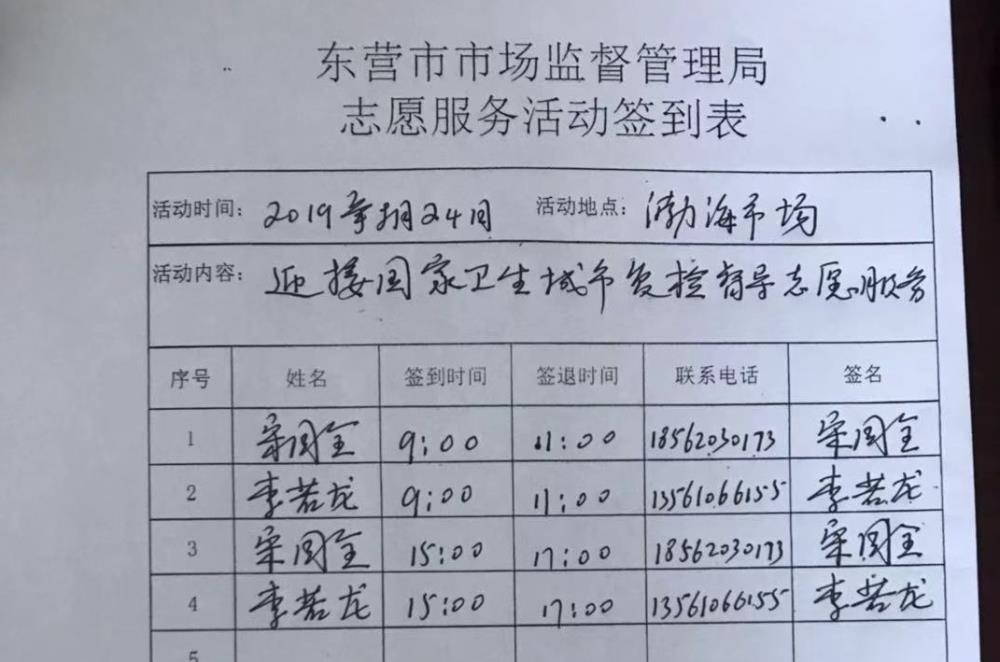 东营市市场监督管理局
志愿服务活动签到表
活动时间: 2019年2月24日 活动地点: 渤海市场
活动内容: 迎接国家卫生城市复检督导志愿服务
序号 姓名 签到时间 签退时间 联系电话 签名
1 宋国全 9:00 11:00 18562030173 宋国全
2 李若龙 9:00 11:00 13561066155 李若龙
3 宋国全 15:00 17:00 18562030173 宋国全
4 李若龙 15:00 17:00 13561066155 李若龙
5